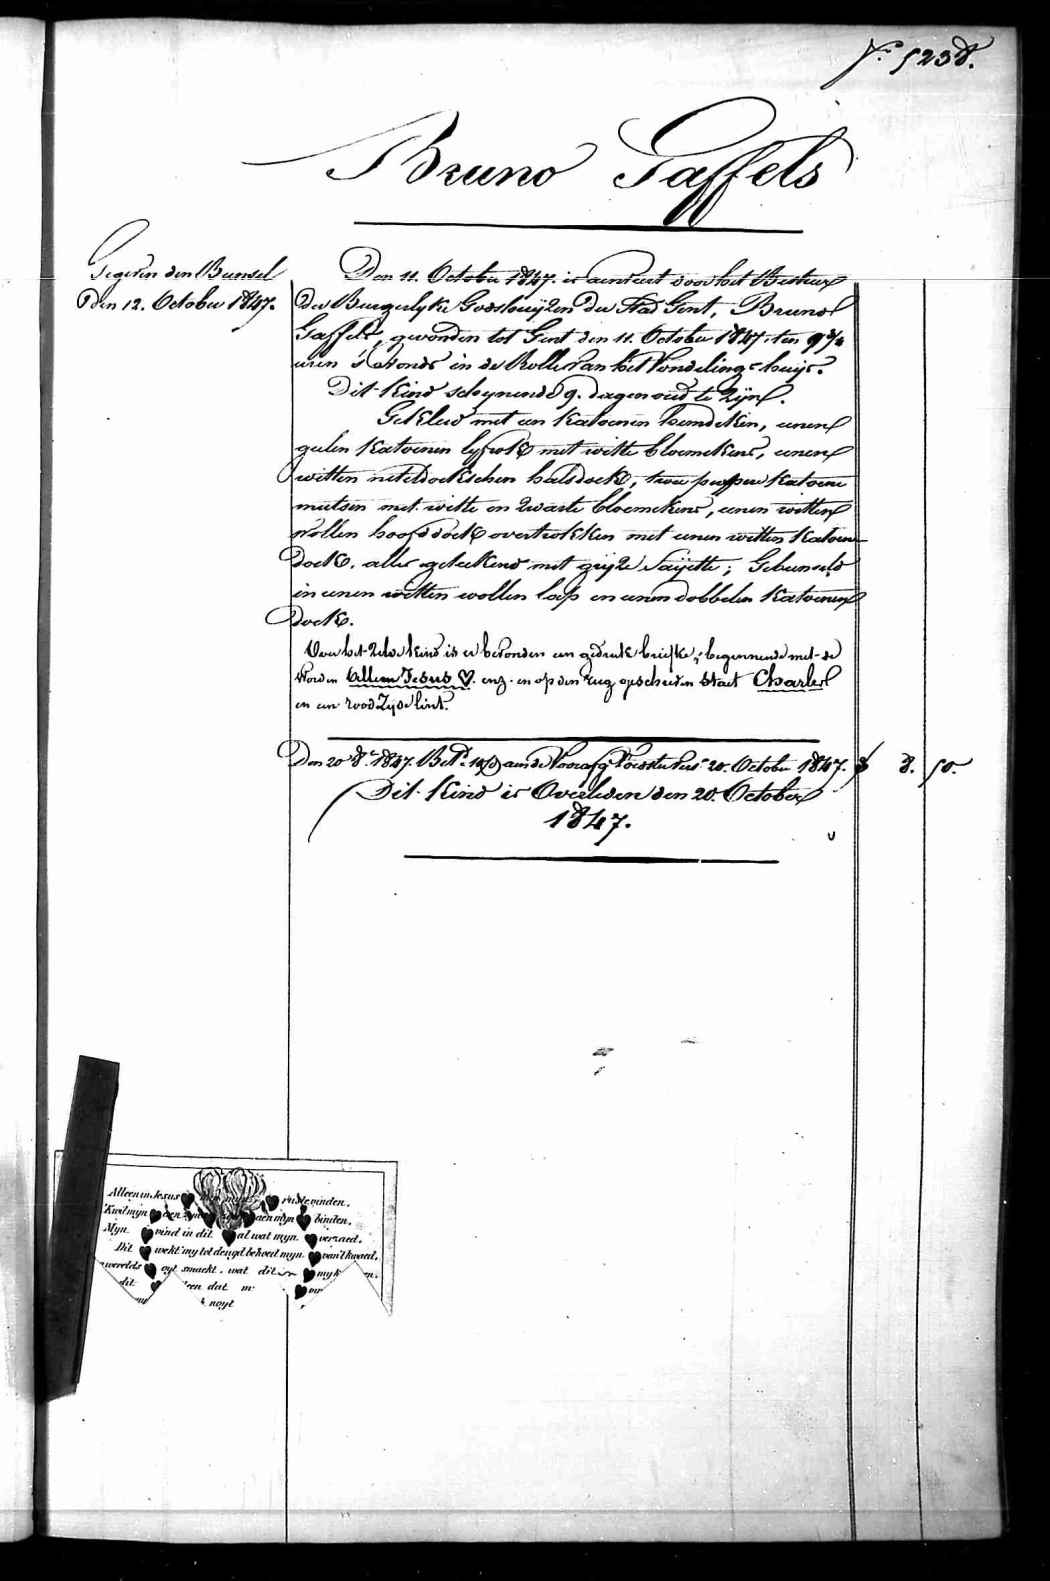 Nº 5238.
Bruno Gaffels
Gegeven den Bunsel
Den 12. October 1847.
Den 11. October 1847. is aenveert door het Bestuer
der Burgerlyke Godshuyzen der Stad Gent, Bruno
Gaffels, gevonden tot Gent den 11. October 1847. ten 9 3/4
uren 's avonds in de Rolle van het Vondelings huys.
Dit kind schynende 9. dagen oud te zyn.
Gekleed met een katoenen hemdeken, eenen
geelen katoenen lyfrok met witte bloemekens, eenen
witten neteldoekschen halsdoek, twee purpere katoene
mutsen met witte en zwarte bloemekens, eenen witten
wollen hoofddoek overtrokken met eenen witten katoene
doek. alles geteekend met gryze Saijette; Gebunseld
in eenen witten wollen lap en eenen dobbelen katoenen
doek.
Over het zelve kind is er bevonden een gedrukt briefke, beginnende met de
Woorden Alleen Jesus ♥. enz. en op den rug geschreven staet Charles
en een rood Zyde lint.
Den 20 8.e 1847. Bet.d aen de Voorafg. Voedster tot 20. October 1847. 8. 50.
Dit kind is Overleden den 20. October
1847.
Alleen in Jesus ruste vinden.
'K wil myn aen myn binden.
Myn vind in dit al wat myn verzaed.
Dit wekt my tot deugd behoed myn van 't kwaed.
werelds oyt smackt. wat dit my
dit een dat m
noyt